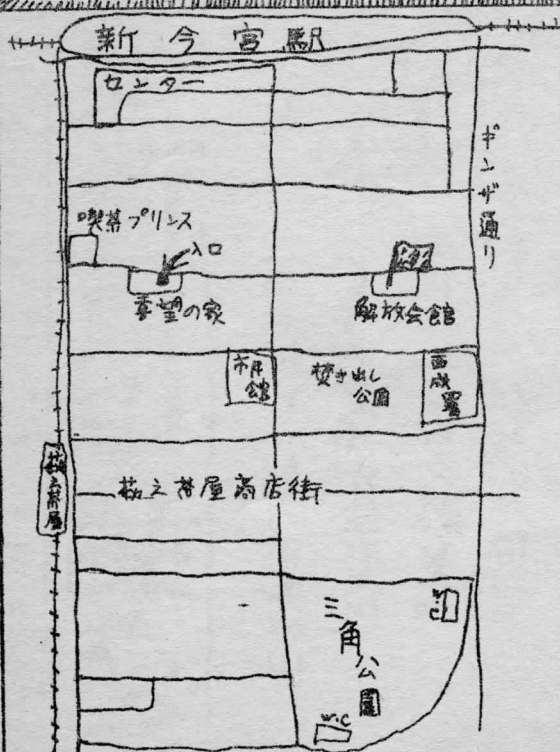 新今宮駅
センター
ギンザ通り
喫茶プリンス
入口
希望の家
解放会館
市民館
炊き出し
公園
西成署
萩之茶屋
萩之茶屋商店街
W.C
三角公園
W.C